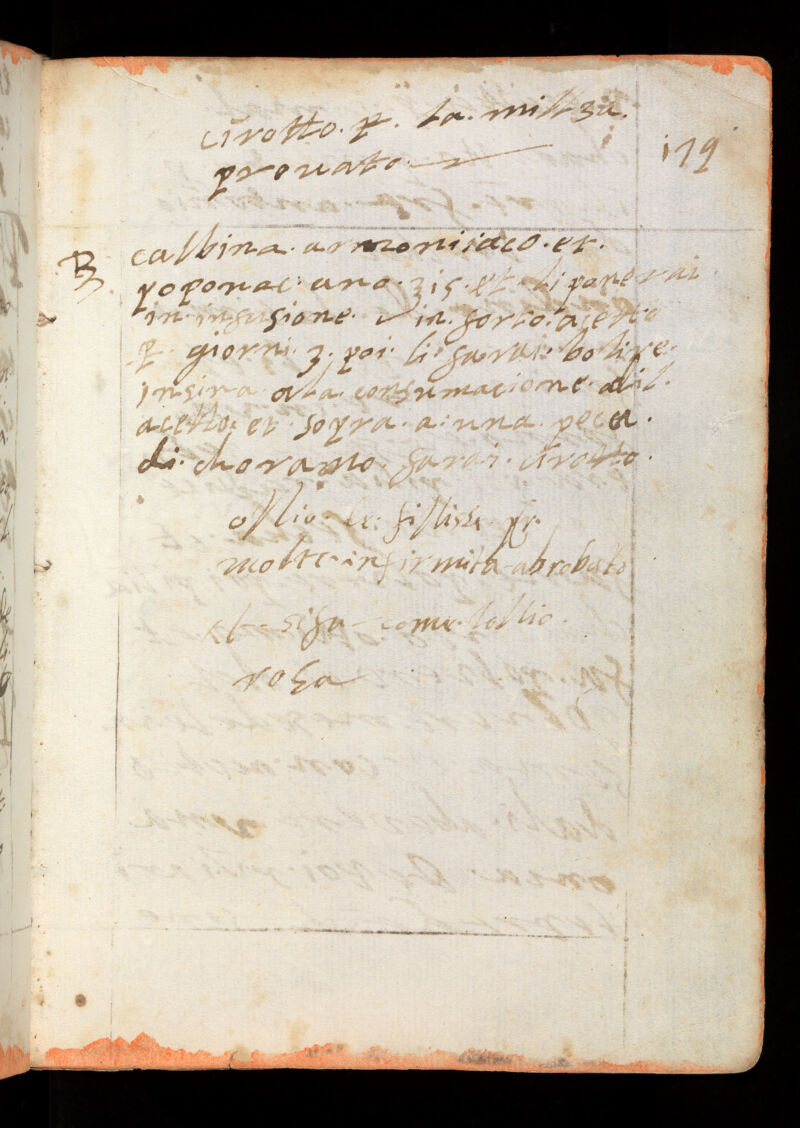 cirotto. p. la. miltza.
provato.
179
calbina. armoniiaco. et.
yoponac. ana. ʒ is. et. li ponerai.
in. infusione. in. forto. aceto
p. giorni. 3. poi. li farai. bolire.
insina ala. consumacione. dil.
acetto. et sopra. a. una. peca.
di. choramo. farai. cirotto.
ollio. de. fillisi pr.
molte. infirmita. abrobato
et. sifa. come. lollio.
rosa